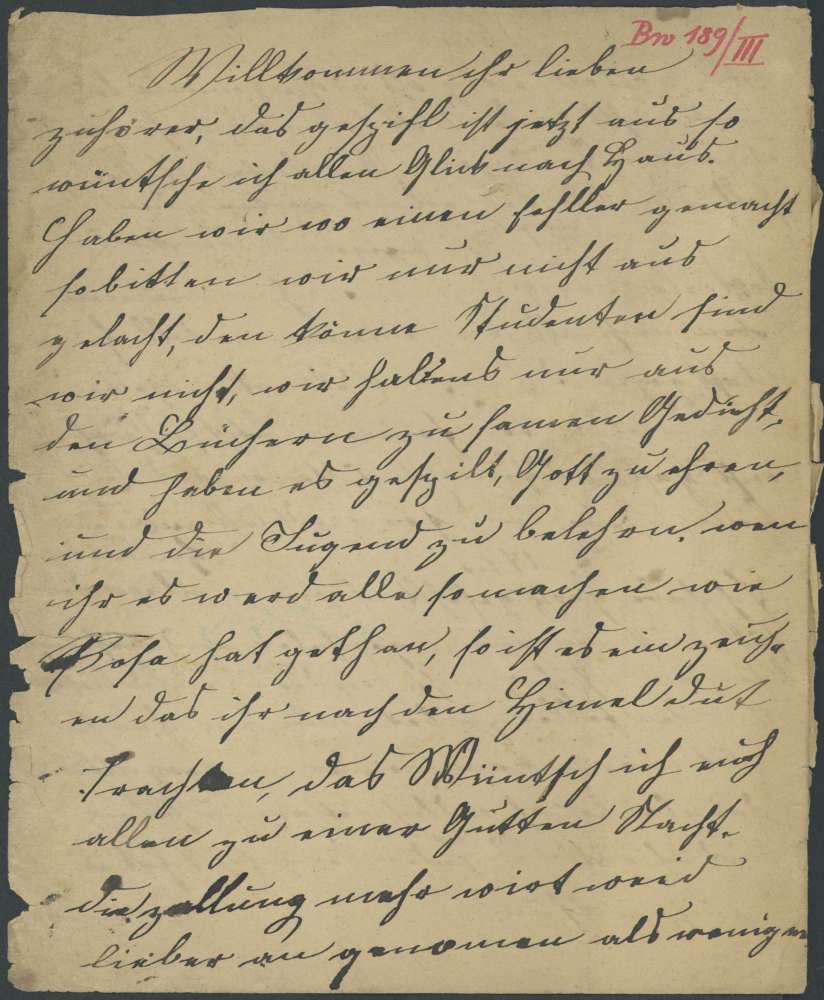 Bw 189/III
Willkommen ihr lieben
zuhörer, das gespihl ist jetzt aus so
wüntsche ich allen Glick nach Haus.
Haben wir wo einen fehller gemacht
so bitten wir nur nicht aus
gelacht, den könne Studenten sind
wir nicht, wir habens nur aus
den Büchern zu samen Gedicht,
und haben es gespilt, Gott zu ehren,
und die Jugend zu belehrn. wen
ihr es werd alle so machen wie
Rosa hat gethan, so ist es ein zeich-
en das ihr nach den Himel dut
trachten, das Wüntsch ich euch
allen zu einer Gutten Nacht.
die zallung mehr wirt
lieber an genomen als weniger